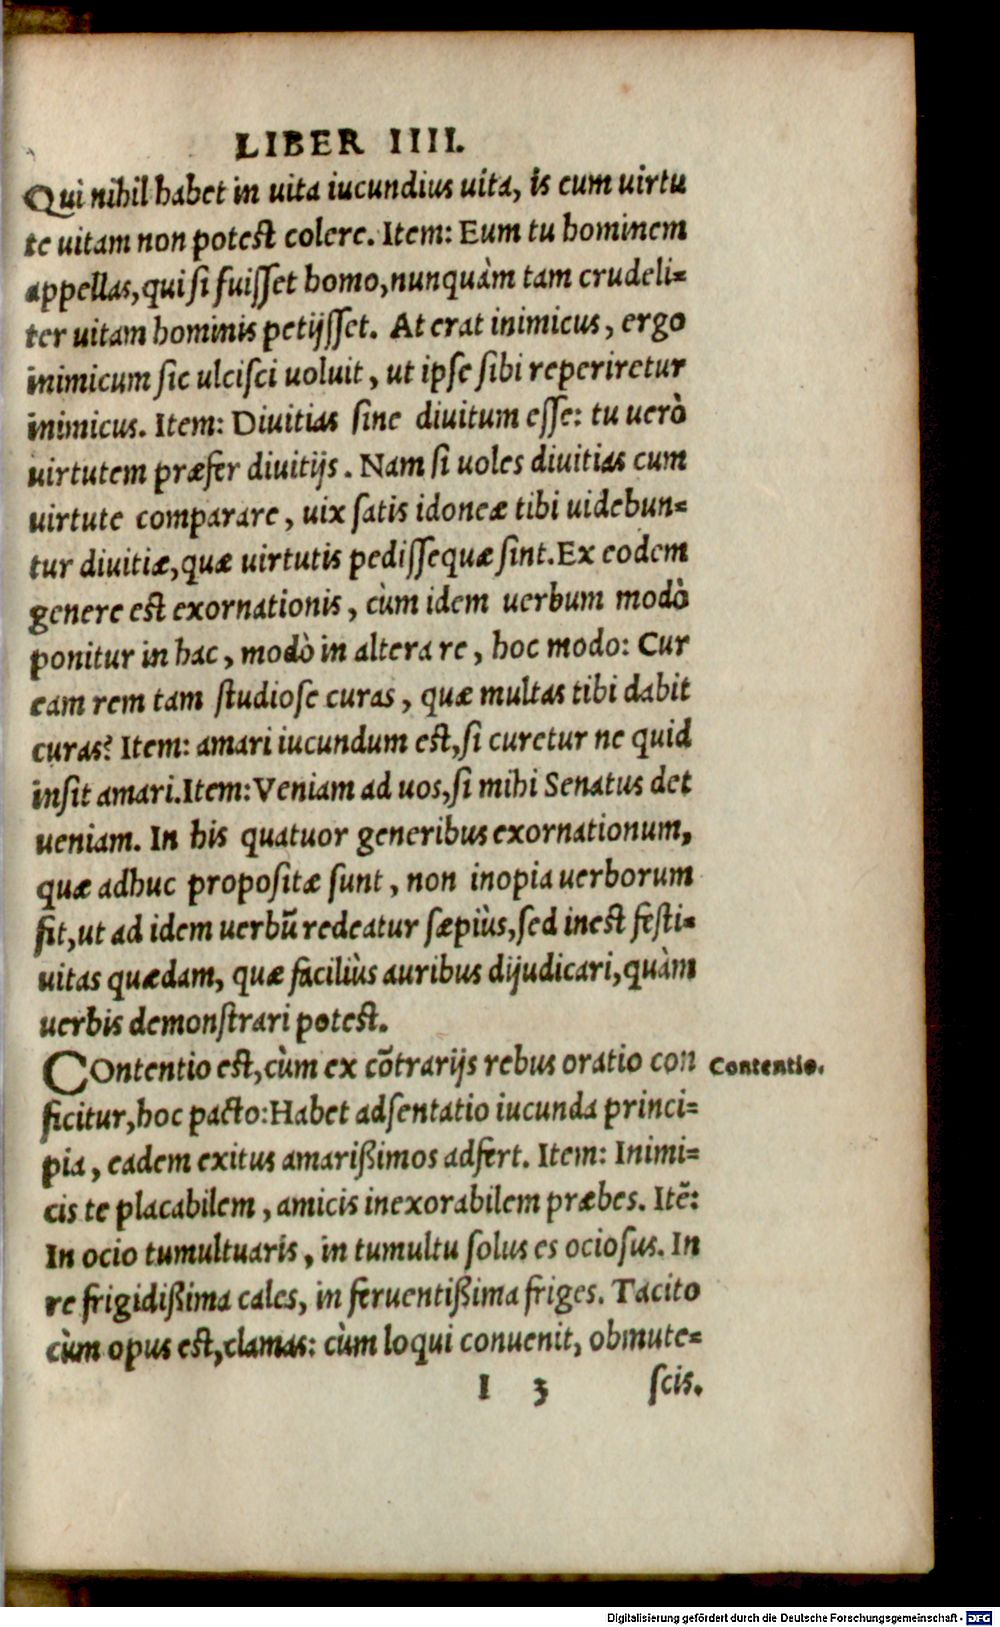 LIBER IIII.
Qui nihil habet in uita iucundius uita, is cum uirtu
te uitam non potest colere. Item: Eum tu hominem
appellas, qui si fuisset homo, nunquàm tam crudeli=
ter uitam hominis petijsset. At erat inimicus, ergo
inimicum sic ulcisci uoluit, ut ipse sibi reperiretur
inimicus. Item: Diuitias sine diuitum esse: tu uerò
uirtutem præfer diuitijs. Nam si uoles diuitias cum
uirtute comparare, uix satis idoneæ tibi uidebun=
tur diuitiæ, quæ uirtutis pedissequæ sint. Ex eodem
genere est exornationis, cùm idem uerbum modò
ponitur in hac, modò in altera re, hoc modo: Cur
eam rem tam studiose curas, quæ multas tibi dabit
curas? Item: amari iucundum est, si curetur ne quid
insit amari. Item: Veniam ad uos, si mihi Senatus det
ueniam. In his quatuor generibus exornationum,
quæ adhuc propositæ sunt, non inopia uerborum
fit, ut ad idem uerbũ redeatur sæpiùs, sed inest festi=
uitas quædam, quæ faciliùs auribus dijudicari, quàm
uerbis demonstrari potest.
COntentio est, cùm ex cõtrarijs rebus oratio con
Contentio.
ficitur, hoc pacto: Habet adsentatio iucunda princi=
pia, eadem exitus amarißimos adfert. Item: Inimi=
cis te placabilem, amicis inexorabilem præbes. Itẽ:
In ocio tumultuaris, in tumultu solus es ociosus. In
re frigidißima cales, in feruentißima friges. Tacito
cùm opus est, clamas: cùm loqui conuenit, obmute=
I 3 scis.
Digitalisierung gefördert durch die Deutsche Forschungsgemeinschaft - DFG